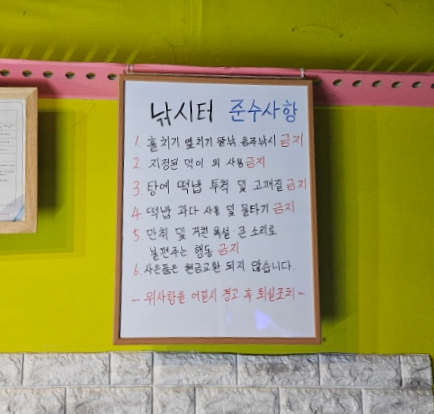 낚시터 준수사항
1. 훌치기 옆치기 뜰낚 음주낚시 금지
2. 지정된 먹이 외 사용금지
3. 탕에 떡밥 투척 및 고패질 금지
4. 떡밥 과다 사용 및 물타기 금지
5. 만취 및 거친 욕설 큰 소리로
불편주는 행동 금지
6. 사은품은 현금교환 되지 않습니다.
- 위사항을 어길시 경고 후 퇴실조치 -